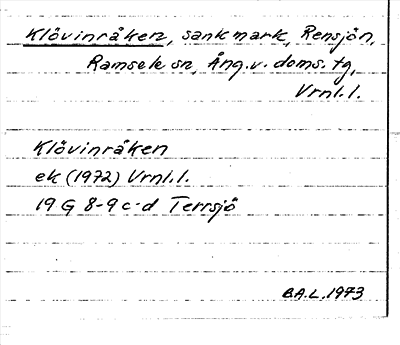 Klövinråken, sankmark, Rensjön,
Ramsele sn, Ång. v. doms. tg,
Vrnl. l.
Klövinråken
ek (1972) Vrnl. l.
19 G 8-9 c-d Terrsjö
B.A.L. 1973